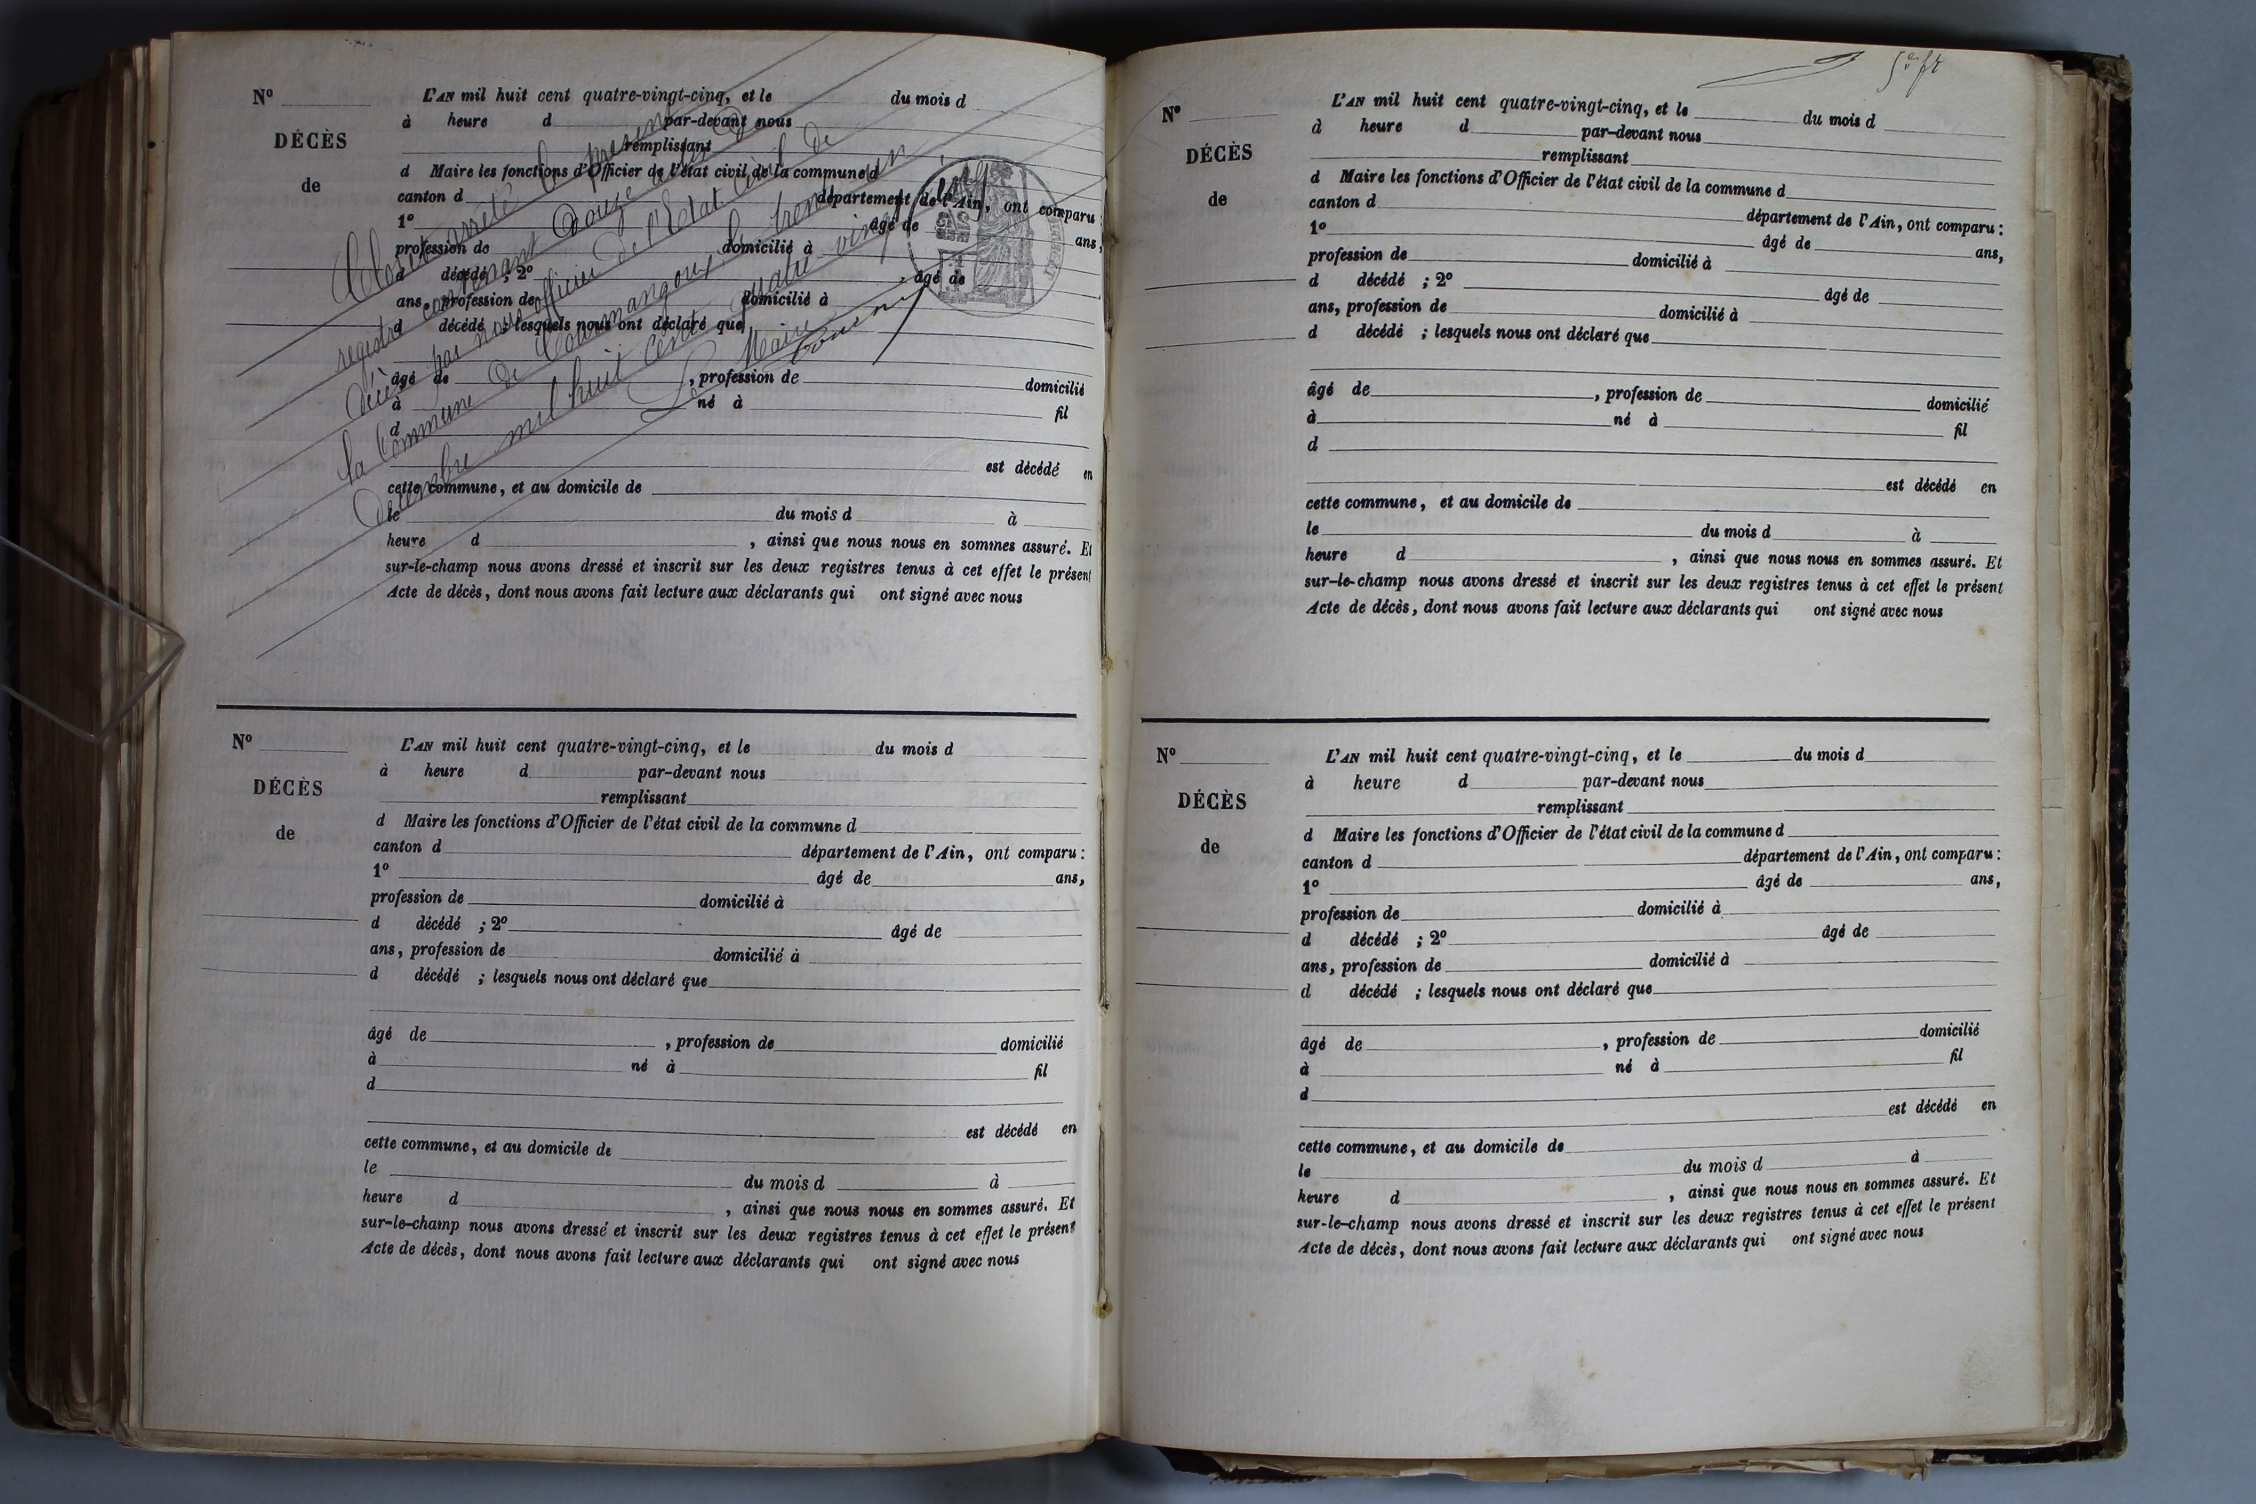 Nº
DÉCÈS
de
L'AN mil huit cent quatre-vingt-cinq, et le du mois d
à heure d par-devant nous
remplissant
d Maire les fonctions d'Officier de l'état civil de la commune d
canton d département de l'Ain, ont comparu :
1º âgé de ans,
profession de domicilié à
d décédé ; 2º âgé de
ans, profession de domicilié à
d décédé ; lesquels nous ont déclaré que
âgé de , profession de domicilié
à né à fil
d
est décédé en
cette commune, et au domicile de
le du mois d à
heure d , ainsi que nous nous en sommes assuré. Et
sur-le-champ nous avons dressé et inscrit sur les deux registres tenus à cet effet le présent
Acte de décès, dont nous avons fait lecture aux déclarants qui ont signé avec nous
Clos et arrêté le présent
registre contenant douze actes de
décès par nous officier de l'Etat civil de
la commune de Cormangoux le trente un
décembre mil huit cent quatre vingt cinq
Le Maire
Nº
DÉCÈS
de
L'AN mil huit cent quatre-vingt-cinq, et le du mois d
à heure d par-devant nous
remplissant
d Maire les fonctions d'Officier de l'état civil de la commune d
canton d département de l'Ain, ont comparu :
1º âgé de ans,
profession de domicilié à
d décédé ; 2º âgé de
ans, profession de domicilié à
d décédé ; lesquels nous ont déclaré que
âgé de , profession de domicilié
à né à fil
d
est décédé en
cette commune, et au domicile de
le du mois d à
heure d , ainsi que nous nous en sommes assuré. Et
sur-le-champ nous avons dressé et inscrit sur les deux registres tenus à cet effet le présent
Acte de décès, dont nous avons fait lecture aux déclarants qui ont signé avec nous
Nº
DÉCÈS
de
L'AN mil huit cent quatre-vingt-cinq, et le du mois d
à heure d par-devant nous
remplissant
d Maire les fonctions d'Officier de l'état civil de la commune d
canton d département de l'Ain, ont comparu :
1º âgé de ans,
profession de domicilié à
d décédé ; 2º âgé de
ans, profession de domicilié à
d décédé ; lesquels nous ont déclaré que
âgé de , profession de domicilié
à né à fil
d
est décédé en
cette commune, et au domicile de
le du mois d à
heure d , ainsi que nous nous en sommes assuré. Et
sur-le-champ nous avons dressé et inscrit sur les deux registres tenus à cet effet le présent
Acte de décès, dont nous avons fait lecture aux déclarants qui ont signé avec nous
Nº
DÉCÈS
de
L'AN mil huit cent quatre-vingt-cinq, et le du mois d
à heure d par-devant nous
remplissant
d Maire les fonctions d'Officier de l'état civil de la commune d
canton d département de l'Ain, ont comparu :
1º âgé de ans,
profession de domicilié à
d décédé ; 2º âgé de
ans, profession de domicilié à
d décédé ; lesquels nous ont déclaré que
âgé de , profession de domicilié
à né à fil
d
est décédé en
cette commune, et au domicile de
le du mois d à
heure d , ainsi que nous nous en sommes assuré. Et
sur-le-champ nous avons dressé et inscrit sur les deux registres tenus à cet effet le présent
Acte de décès, dont nous avons fait lecture aux déclarants qui ont signé avec nous